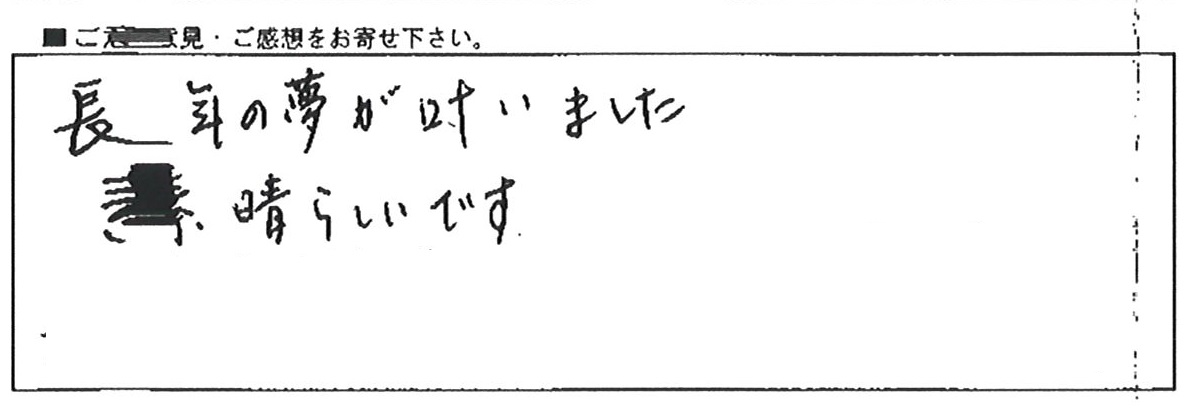 ■ご意見・ご感想をお寄せ下さい。
長年の夢が叶いました
素晴らしいです